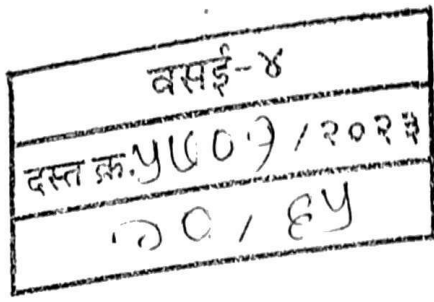 वसई-४
दस्त क्र.५७०१ / २०२३
१८ / ६५